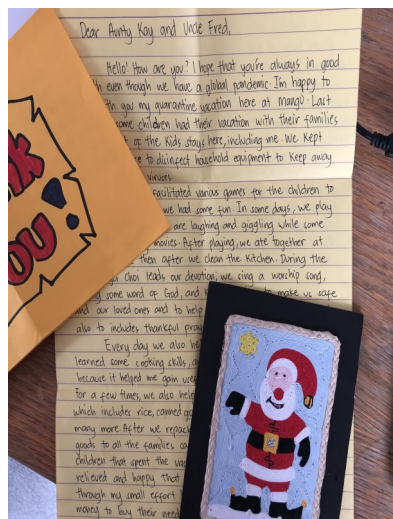 Dear Aunty Kay and Uncle Fred,
Hello! How are you? I hope that you're always in good
even though we have a global pandemic. I'm happy to
you my quarantine vacation here at Mango. Last
some children had their vacation with their families
of the kids stays here, including me. We kept
to disinfect household equipment to keep away
viruses.
facilitated various games for the children to
we had some fun. In some days, we play
are laughing and giggling while some
movies. After playing, we ate together at
then after we clean the kitchen. During the
Choi leads our devotion, we sing a worship song,
some word of God, and to make us safe
and our loved ones and to help
also to includes thankful pray
Every day we also he
learned some cooking skills,
because it helped me gain we
For a few times, we also help
which includes rice, canned go
many more. After we repack
goods to all the families
children that spent the va
relieved and happy that
through my small effort
money to buy their need
YOU